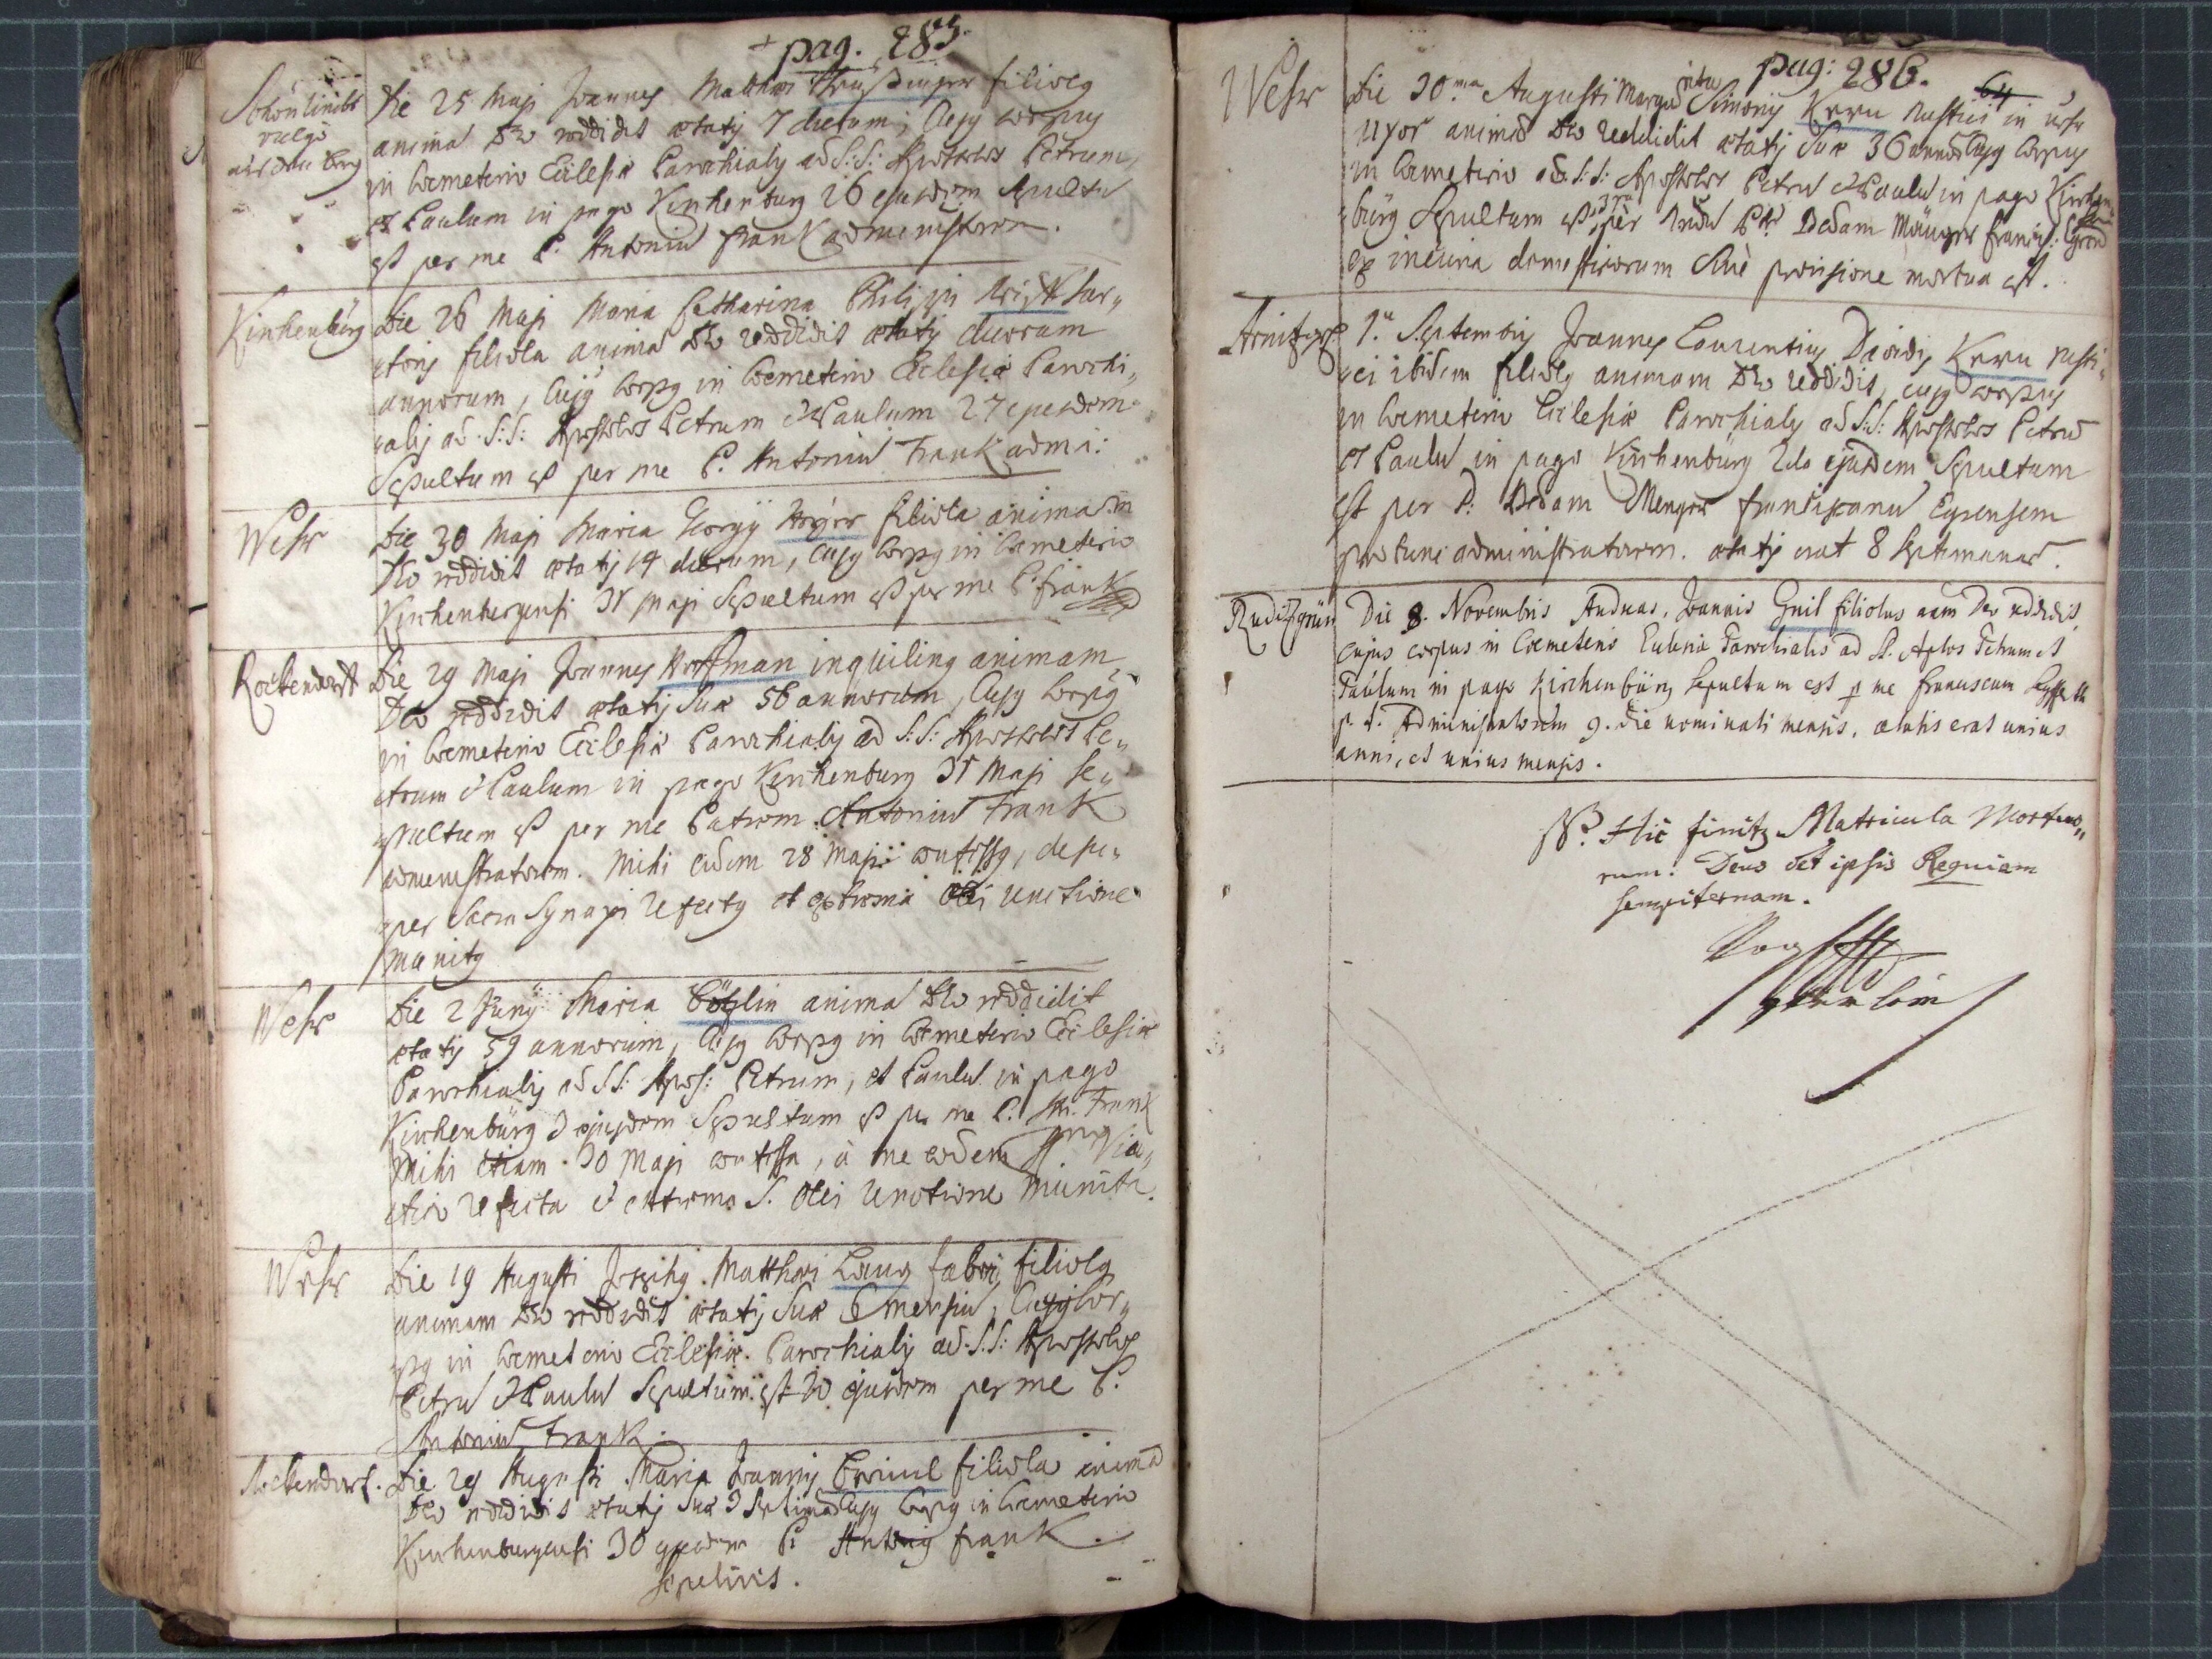 pag. 285.
Schönlinter
vulgo
auf dem Berg
Die 25 Maji Joannes Matthaei filiolg
animā Deo reddidit aetatis 7 dierum, Cujg corpus
in Coemeterio Ecclesiae Parochialis ad S: S: Apostolos Petrum,
et Paulum in pago Kirchenburg 26 ejusdem sepultū
est per me P. Antoniū Frank administratorem.
Kirchenbürg
Die 26 Maji Maria Catharina Philippi sar„
„toris filiola animā Deo reddidit aetatis duorum
annorum, Cujg Corpg in Coemeterio Ecclesiae Parochi„
„alis ad S:S: Apostolos Petrum & Paulum 27 ejusdem
Sepultum est per me P. Antoniū Frank admi:
Wehr
Die 30 Maji Maria Georgij filiola animam
Deo reddidit aetatis 14 dierum, Cujg Corpg in Coemeterio
Kirchenbergensi 31 Maji Sepultum est per me P. Frank
Rockendorff
Die 29 Maji Joannes Hoffman inquiling animam
Deo reddidit aetatis Suae 56 annorum, Cujg Corpg
in Coemeterio Ecclesiae Parochialis ad S:S: Apostolos Pe„
„trum & Paulum in pago Kirchenburg 31 Maji se„
„pultum est per me Patrem Antoniū Frank
administratorem. Mihi eidem 28 Maji confessg, de su„
„per Sacra Synaxi refectg et extrema olei unctione
munitg
Wehr
Die 2 Junij Maria Bötzlin animā Deo reddidit
aetatis 59 annorum, Cujg Corpg in Coemeterio Ecclesiae
Parochialis ad SS: Apos: Petrum, et Paulū in pago
Kirchenbürg 3 ejusdem Sepultum est per me P. An. Frank
Mihi etiam 30 Maji confessa, à me eodem Via„
„tico refecta & extrema S. Olei Unctione munita.
Wehr
Die 19 Augusti Josephg Matthaei Lang fabri filiolg
animam Deo reddidit aetatis Suae 6 mensiū, Cujg Cor„
„pg in Coemeterio Ecclesiae Parochialis ad S:S: Apostolos
Petrū & Paulū Sepultum est 20 ejusdem per me P.
Antoniū Frank.
Rockendorf.
Die 29 Augusti Maria Joannis filiola animā
Deo reddidit aetatis Suae 3 Cujg Corpg in Coemeterio
Kirchenburgensi 30 ejusdem P. Antonig Frank
sepelivit.
pag: 286.
64
Wehr
Die 30ma Augusti Margaritha Simonis Kern rustici in Wehr
uxor animā Deo reddidit aetatis Suae 36 annorū Cujg Corpus
in Coemeterio ad S:S: Apostolos Petrū & Paulū in pago Kirchen„
„bürg Sepultum est, per Rndū P. Bedam Mänger Francisc: Egren
ex incuria domesticorum Sinè provisione mortua est.
1a Septembris Joannes Laurentius Davidis Kern rusti„
„ci ibidem filiolg animam Deo reddidit, cujg corpus
in Coemeterio Ecclesiae Parochialis ad S:S: Apostolos Petrū
et Paulū in pago Kirchenbürg 2do ejusdem Sepultum
est per P. Bedam Menger Franciscanū Egrensem
pro tunc administratorem. aetatis erat 8 septimanarū.
Ruditzgrün
Die 8. Novembris Andreas, Joannis Gnil filiolus aām Deo reddidit,
cujus corpus in Coemeterio Ecclesiae Parochialis ad SS. Aplos Petrum et
Paulum in pago Kirchenbürg sepultum est p me Franciscum
p. t. Administratorem 9. die nominati mensis, aetatis erat unius
anni, et unius mensis.
NB. Hic finitg Matricula Mortuo„
rum. Deus det ipsis Requiem
sempiternam.